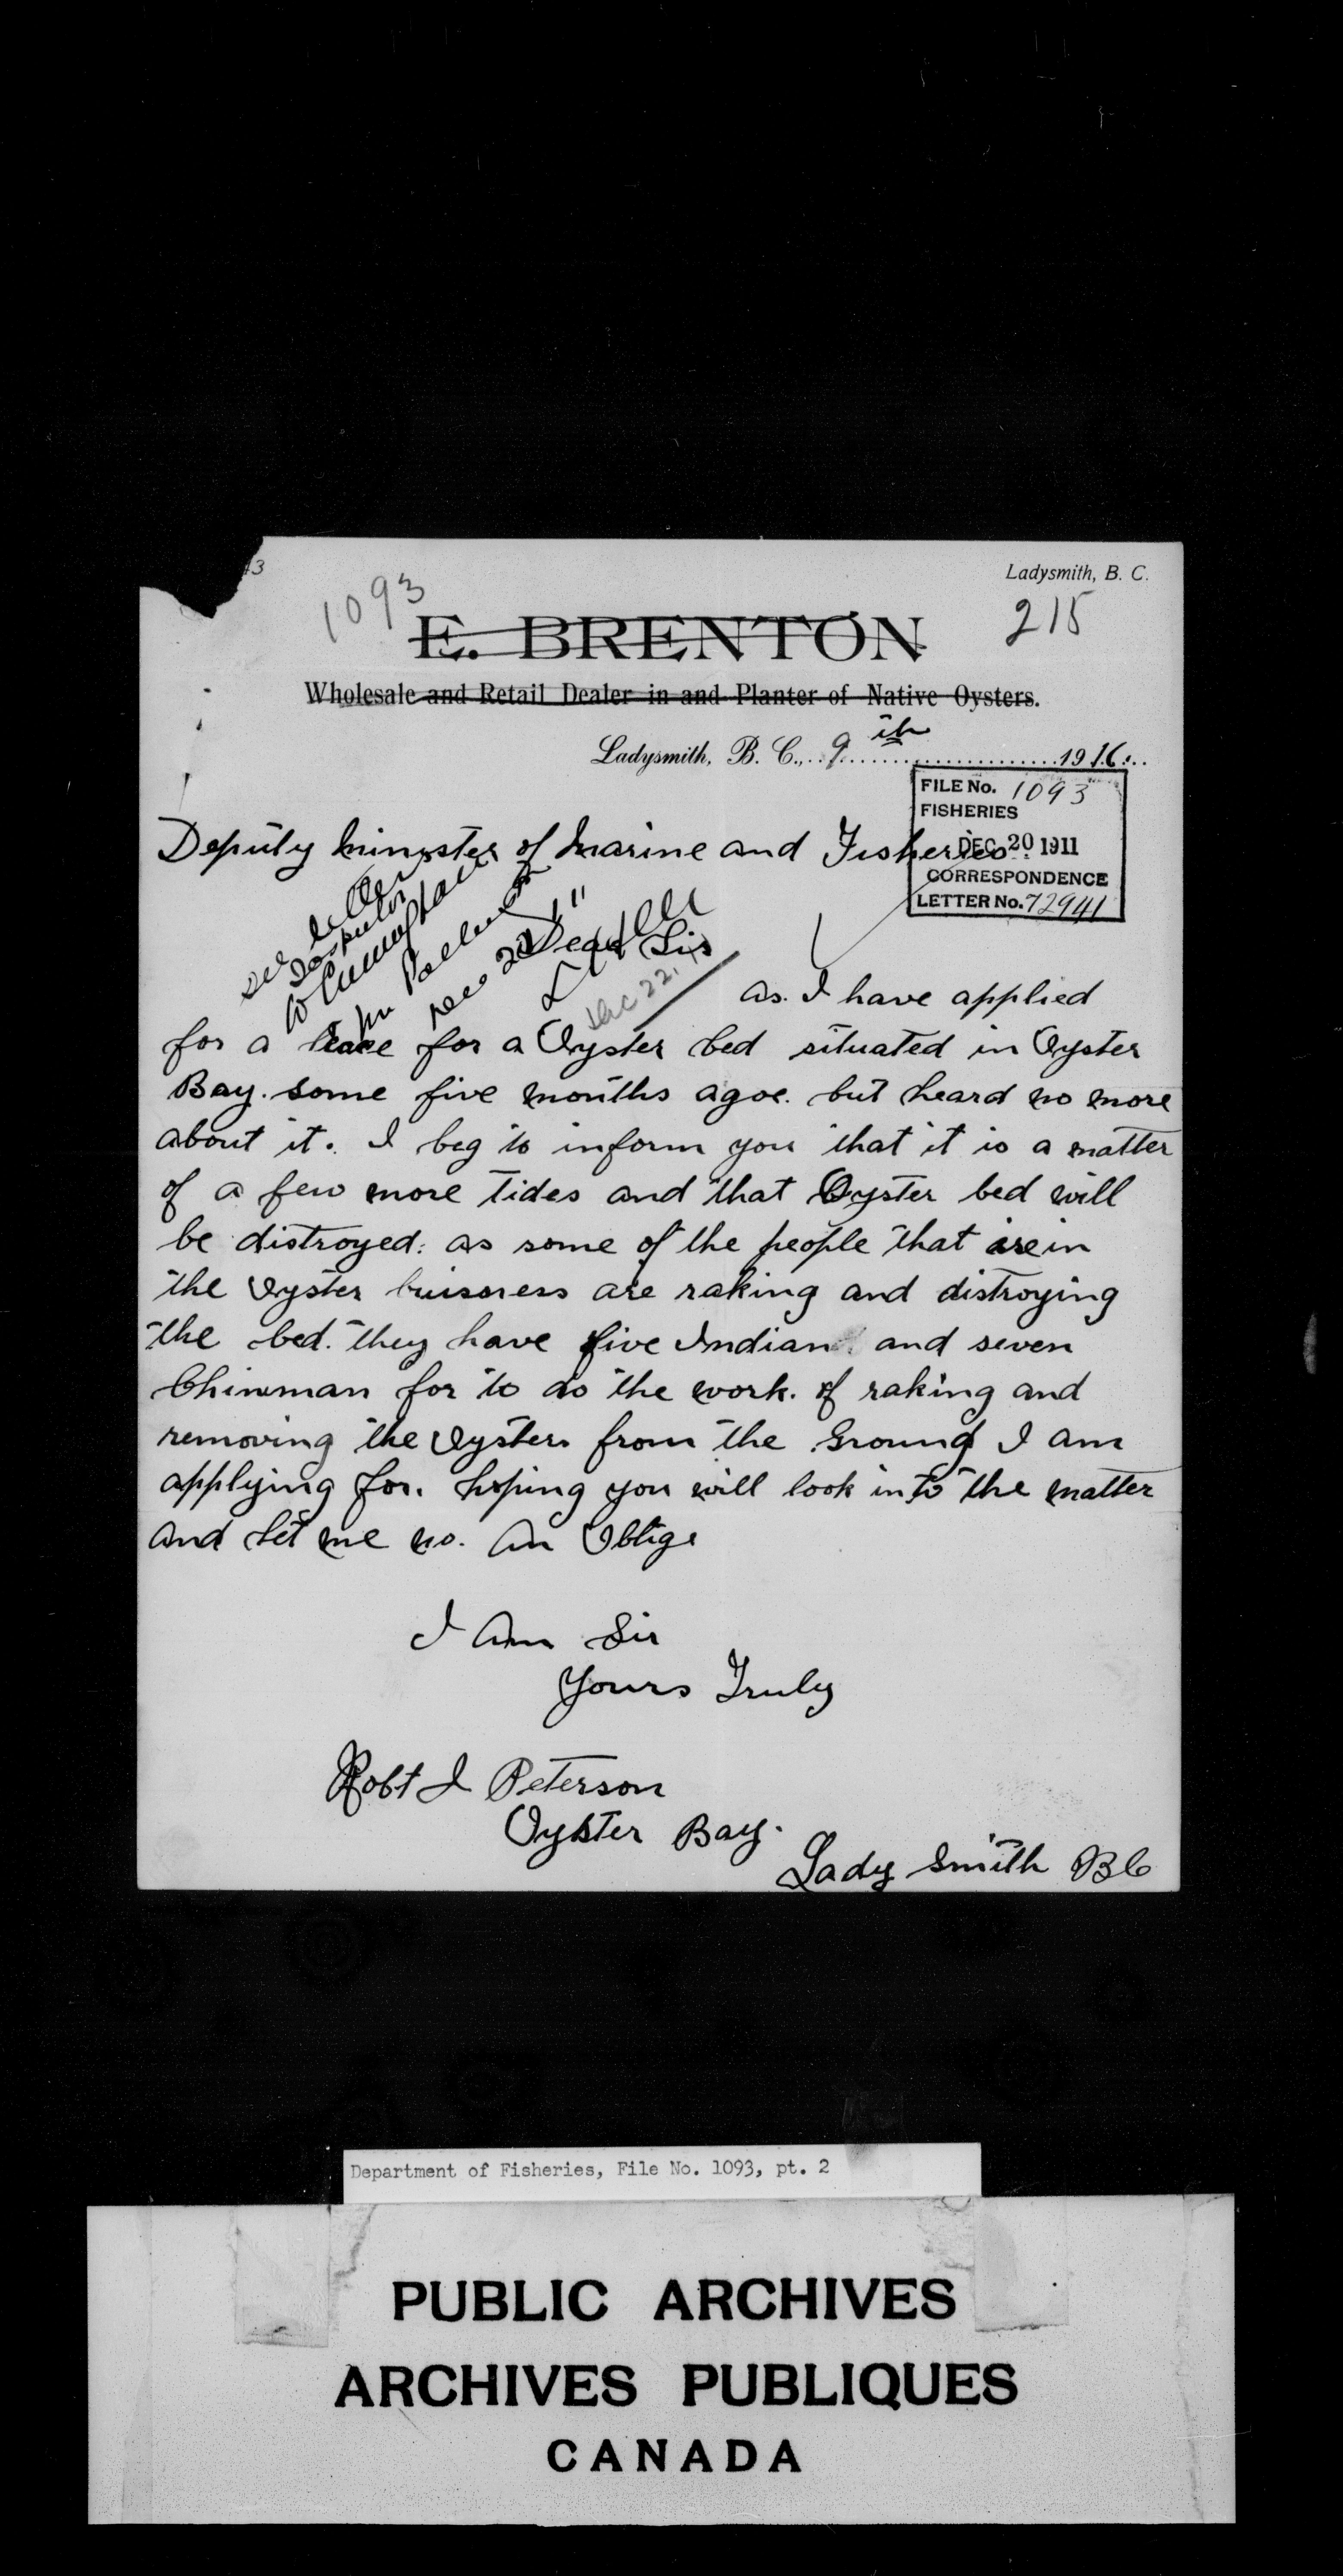 3
Ladysmith, B. C.
1093
215
E. BRENTON
Wholesale and Retail Dealer in and Planter of Native Oysters.
Ladysmith, B. C., 9th 191
FILE No. 1093
FISHERIES
DEC 20 1911
CORRESPONDENCE
LETTER No. 72941
Deputy minister of marine and Fisheries
see letter
Dec 22
Dear Sir
as I have applied
for a lease for a Oyster bed situated in Oyster
Bay. some five months agoe. but heard no more
about it. I beg to inform you that it is a matter
of a few more Tides and that Oyster bed will
be distroyed: as some of the people that are in
the Oyster buissness are raking and distroying
the bed. they have five Indian and seven
Chinman for to do the work. of raking and
removing the Oysters from the Ground I am
applying for. hoping you will look into the matter
and let me no. an Oblige
I Am Sir
Yours Truly
Robt J Peterson
Oyster Bay.
Lady Smith BC
Department of Fisheries, File No. 1093, pt. 2
PUBLIC ARCHIVES
ARCHIVES PUBLIQUES
CANADA